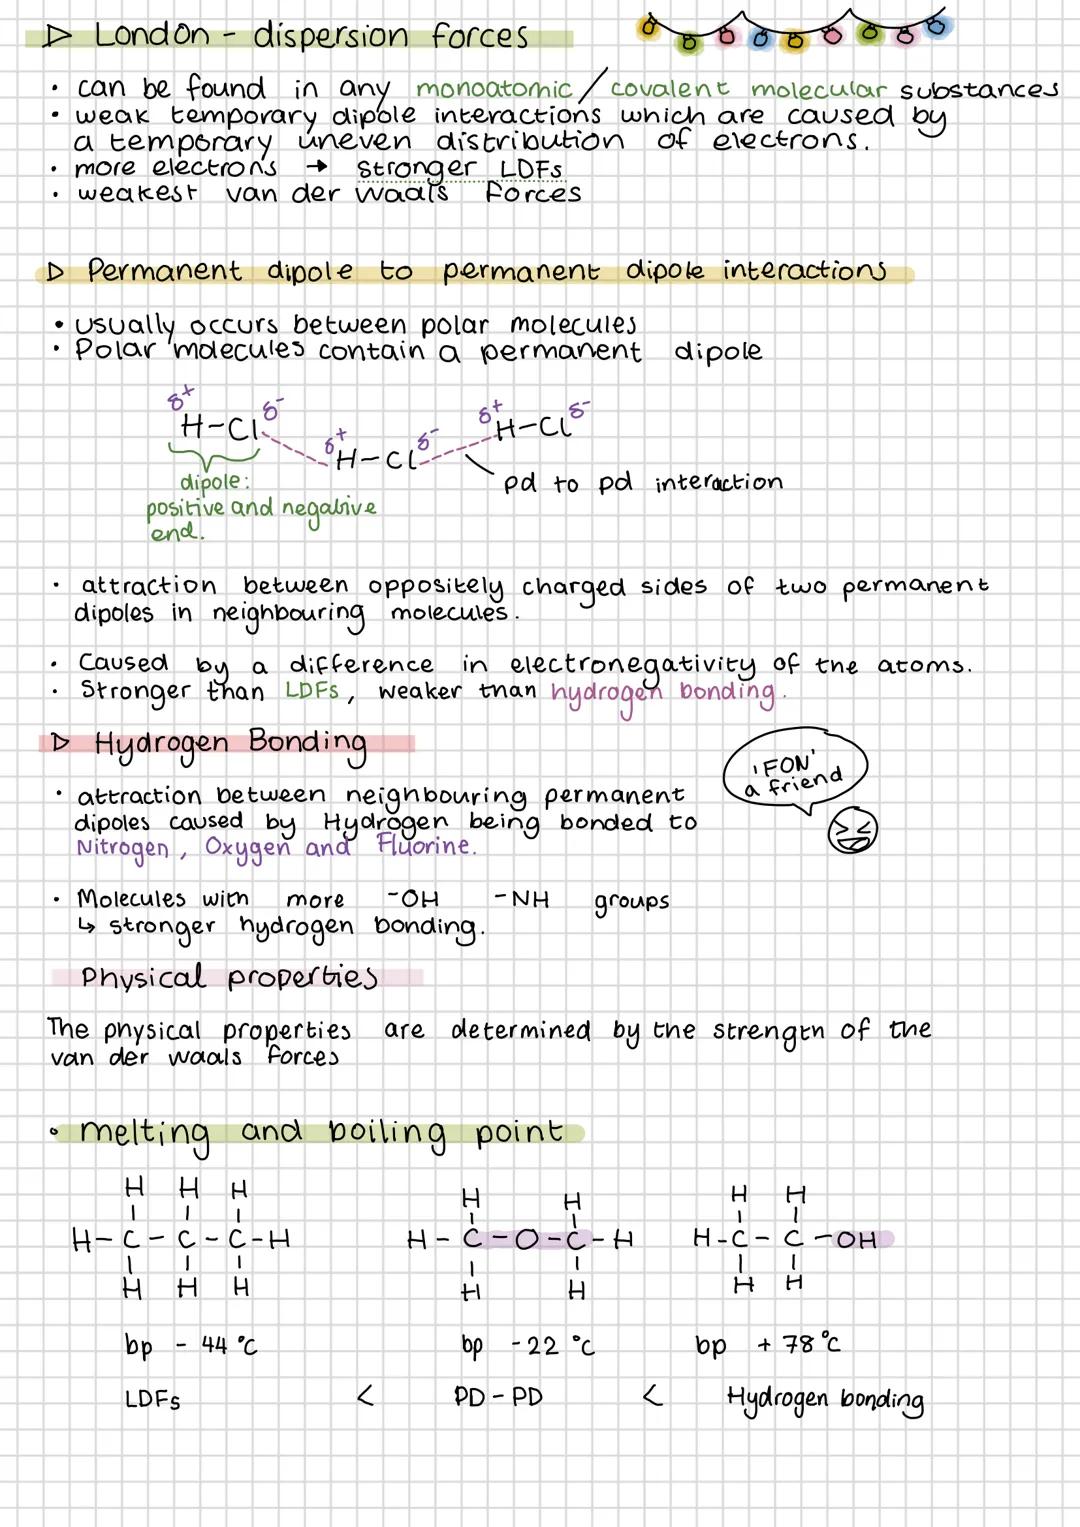 ▷ London - dispersion forces
• can be found in any monoatomic / covalent molecular substances
• weak temporary dipole interactions which are caused by
a temporary uneven distribution of electrons.
• more electrons → stronger LDFs
• weakest van der waals forces
▷ Permanent dipole to permanent dipole interactions
• usually occurs between polar molecules
• Polar molecules contain a permanent dipole
δ+ H-Cl δ- δ+ H-Cl δ- δ+ H-Cl δ-
dipole:
positive and negative
end.
pd to pd interaction
• attraction between oppositely charged sides of two permanent
dipoles in neighbouring molecules.
• Caused by a difference in electronegativity of the atoms.
• Stronger than LDFs, weaker than hydrogen bonding.
▷ Hydrogen Bonding
'FON'
a friend
• attraction between neighbouring permanent
dipoles caused by Hydrogen being bonded to
Nitrogen, Oxygen and Fluorine.
• Molecules with more -OH -NH groups
↳ stronger hydrogen bonding.
Physical properties
The physical properties are determined by the strength of the
van der waals forces
• melting and boiling point
H H H H H H H
H-C-C-C-H H-C-O-C-H H-C-C-OH
H H H H H H H
bp - 44 °C bp -22 °C bp + 78 °C
LDFs < PD - PD < Hydrogen bonding